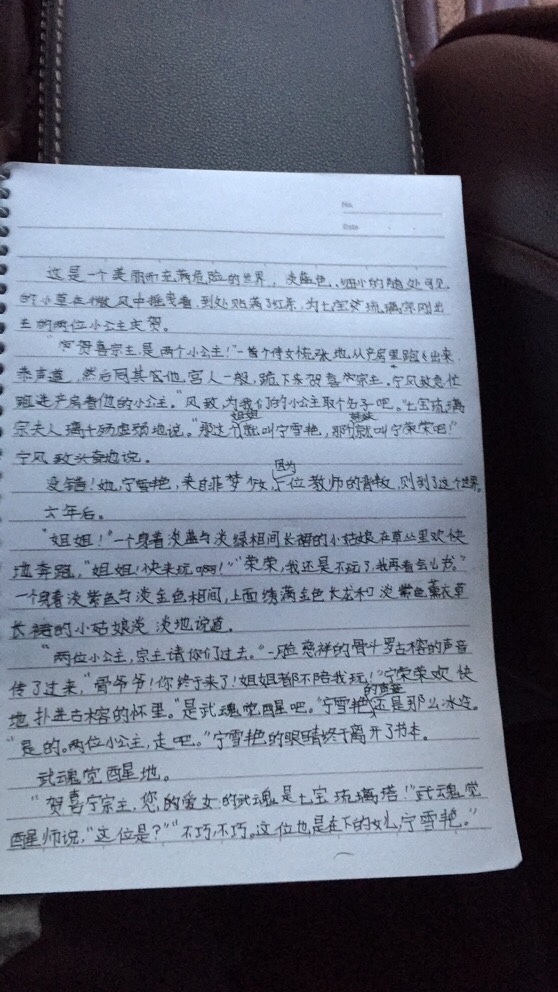 No.
Date
这是一个美丽而充满危险的世界，淡蓝色、细小的随处可见
的小草在微风中摇曳着，到处贴满了红条，为七宝琉璃宗刚出
生的两位小公主庆贺。
"贺喜宗主，是两个小公主！"一首个侍女慌张地从产房里跑出来
恭声道，然后同其他宫人一般，跪下来贺喜宗主。宁风致急忙
跑进产房看他的小公主。"风致，为我们的小公主取个名子吧。"七宝琉璃
宗夫人璃十殇虚弱地说。"那这个姐姐就叫宁雪艳，那个妹妹就叫宁荣荣吧！"
宁风致兴奋地说。
没错！她，宁雪艳，来自非梦少女，因为一位教师的背教，则到了这个世界。
六年后。
"姐姐！"一个身着淡蓝与淡绿相间长裙的小姑娘在草丛里欢快
地奔跑，"姐姐！快来玩啊！""荣荣，我还是不玩了，我再看会儿书。"
一个身着淡紫色与淡金色相间，上面绣满金色长龙和淡紫色薰衣草
长裙的小姑娘淡淡地说道。
"两位小公主，宗主请你们过去。"一脸慈祥的骨斗罗古榕的声音
传了过来，"骨爷爷！你终于来了！姐姐都不陪我玩！"宁荣荣欢快
地扑进古榕的怀里。"是武魂觉醒吧。"宁雪艳的声音还是那么冰冷。
"是的。两位小公主，走吧。"宁雪艳的眼睛终于离开了书本。
武魂觉醒地。
"贺喜宁宗主，您的爱女的武魂是七宝琉璃塔！"武魂觉
醒师说，"这位是？""不巧，不巧。这位也是在下的女儿，宁雪艳。"